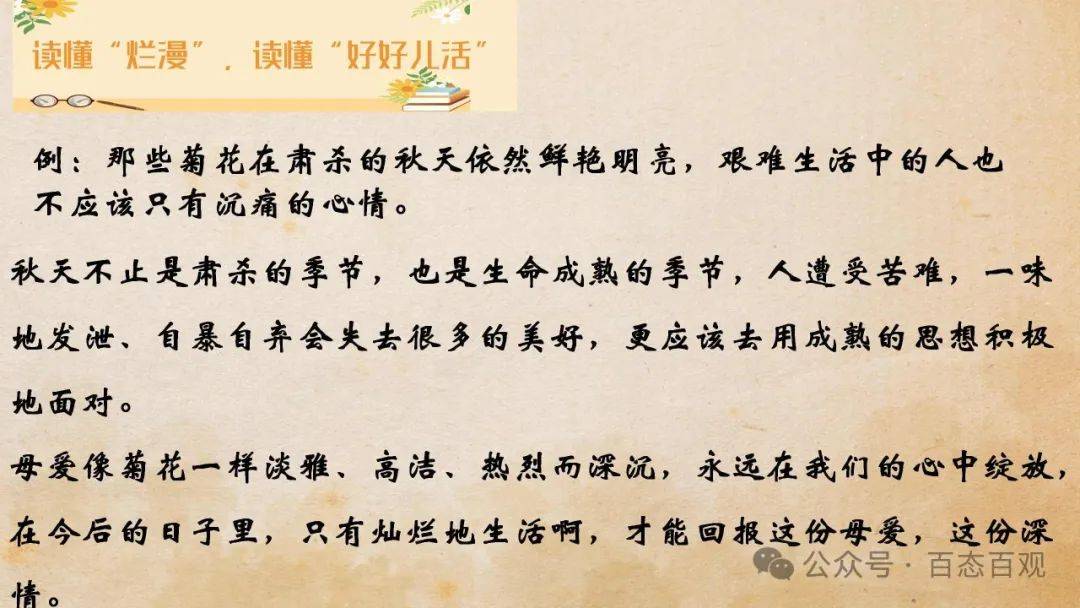 读懂“烂漫”．读懂“好好儿活”
例：那些菊花在肃杀的秋天依然鲜艳明亮，艰难生活中的人也
不应该只有沉痛的心情。
秋天不止是肃杀的季节，也是生命成熟的季节，人遭受苦难，一味
地发泄、自暴自弃会失去很多的美好，更应该去用成熟的思想积极
地面对。
母爱像菊花一样淡雅、高洁、热烈而深沉，永远在我们的心中绽放，
在今后的日子里，只有灿烂地生活啊，才能回报这份母爱，这份深
情。
公众号·百态百观